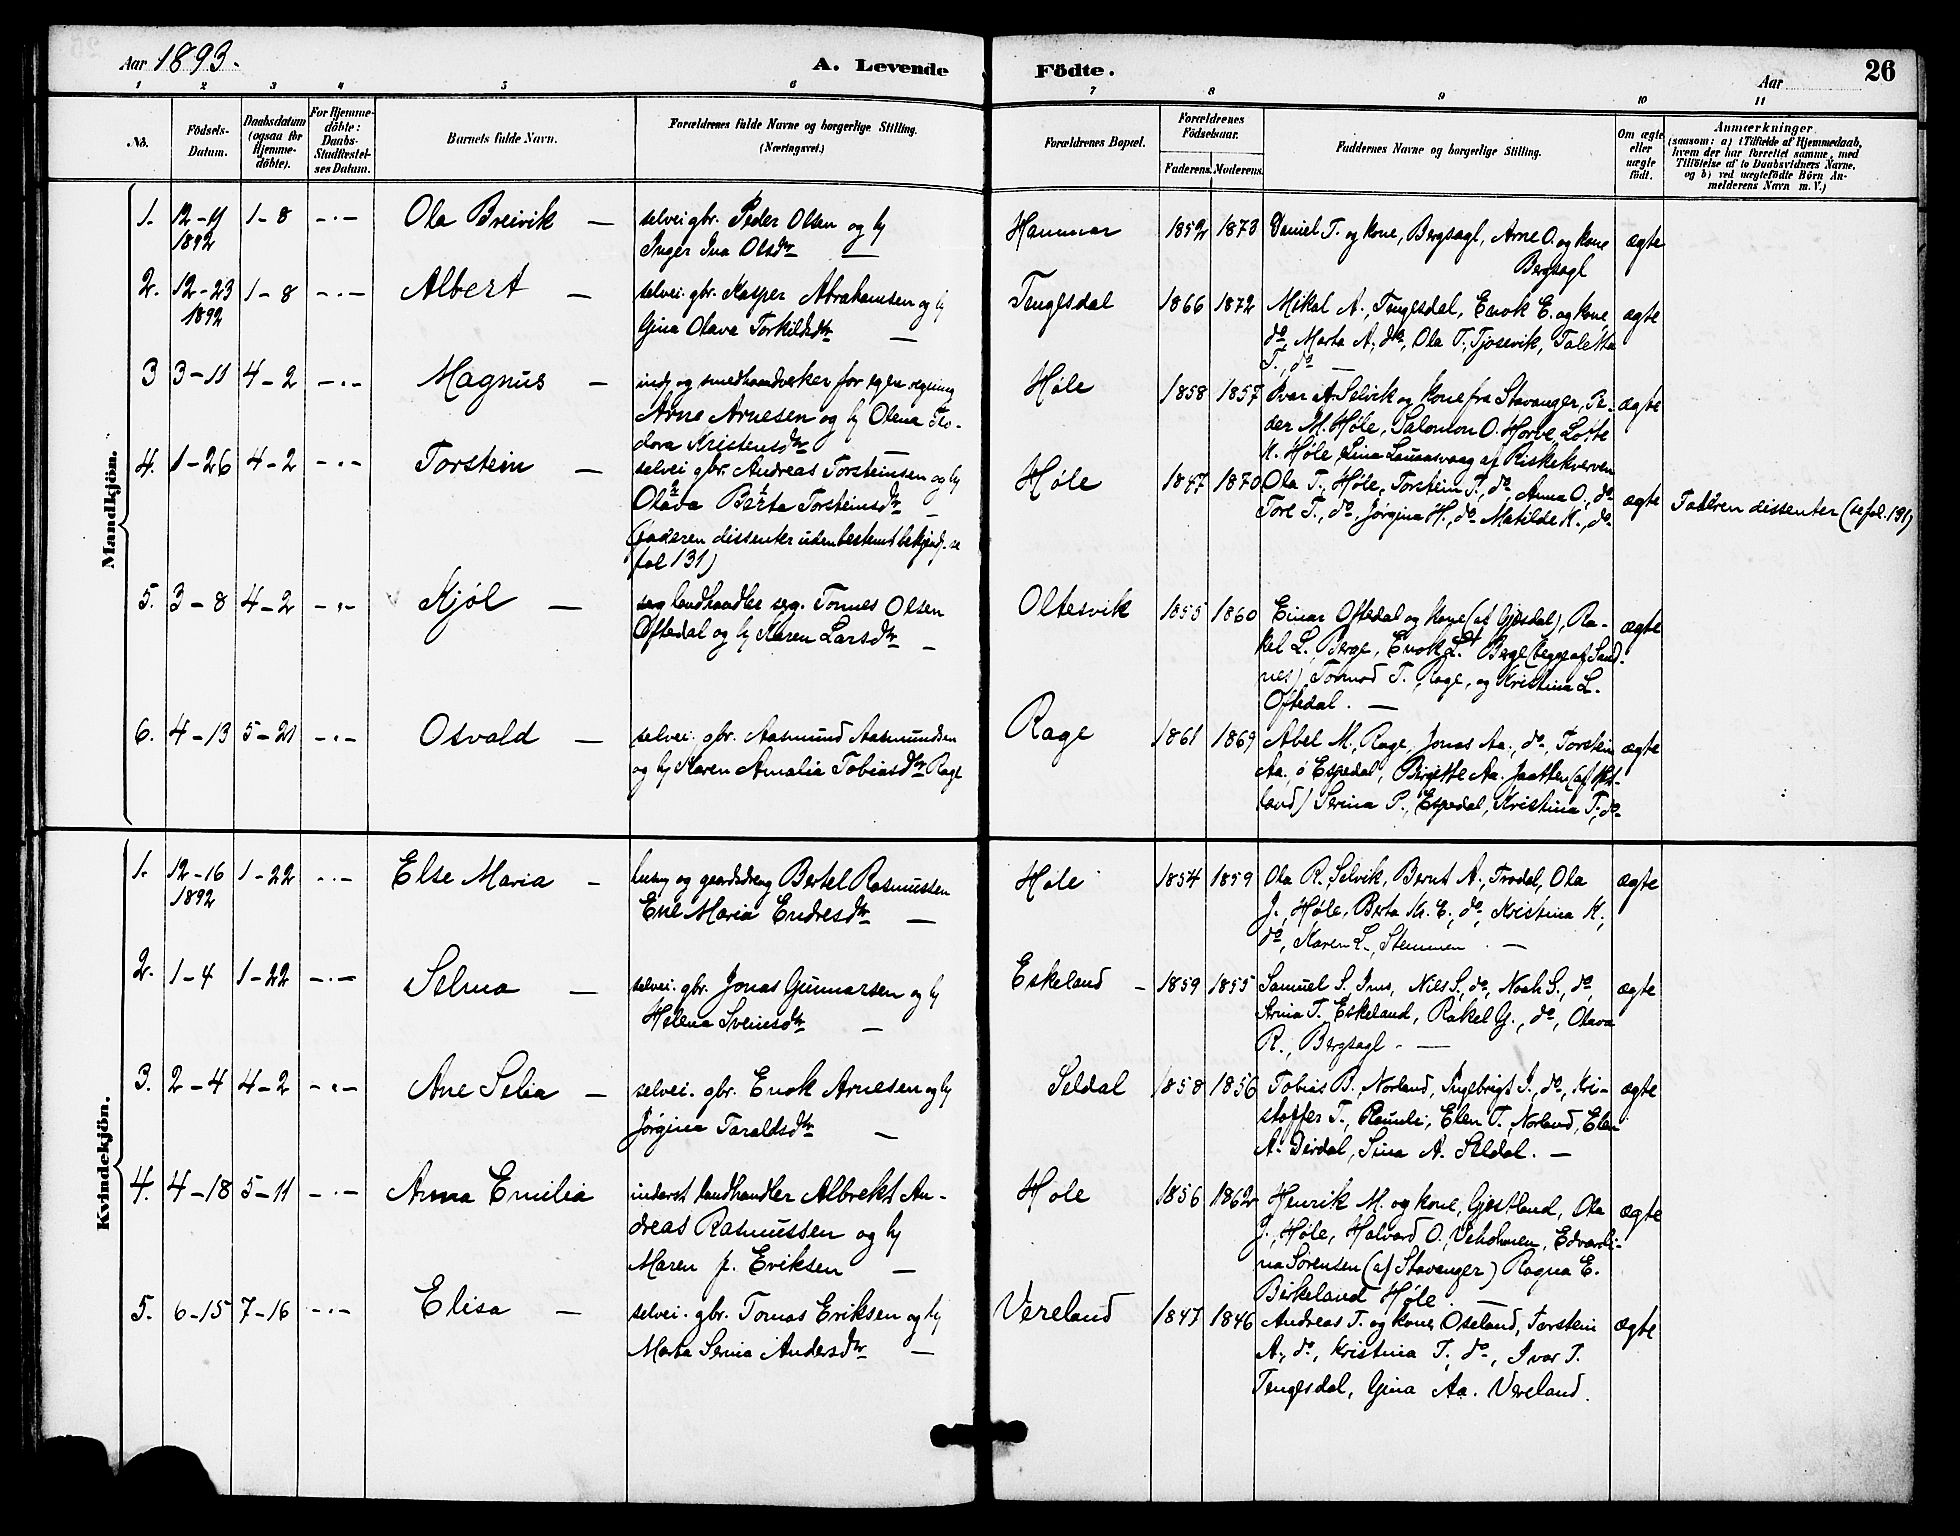 Aar 1893.
A. Levende Födte.
Aar
26
1 2 3 4 5 6 7 8 9 10 11
No.
Födsels-Datum.
Daabsdatum (ogsaa for Hjemme-döbte).
For Hjemme-döbte: Daabs-Stadfæstel-ses Datum.
Barnets fulde Navn.
Forældrenes fulde Navne og borgerlige Stilling.
(Næringsvei.)
Forældrenes Bopæl.
Forældrenes Födselsaar.
Faderens. Moderens.
Faddernes Navne og borgerlige Stilling.
Om ægte eller uægte födt.
Anmærkninger
(saasom: a) i Tilfælde af Hjemmedaab,
hvem der har forrettet samme, med
Tilföielse af to Daabsvidners Navne,
og b) ved uægtefödte Börn An-
melderens Navn m. V.)
Mandkjön.
1. 12-11 1892 1-8 -"- Ola Breivik —
selvei gbr. Peder Olsen og h
Inger Ina Olsdtr —
Hammar 1852 1873
Daniel T. og kone, Bergsagl, Arne O. og kone
Bergsagl
ægte
2. 12-23 1892 1-8 -"- Albert —
selvei. gbr. Kasper Abrahamsen og h
Gina Olava Torkildsdtr —
Tengesdal 1866 1872
Mikal A., Tengesdal, Enok E. og kone
do, Marta A., do, Ola T., Tjosevik, Taletta
T., do —
ægte
3 3-11 4-2 -"- Magnus —
indj og smedhaandverker for egen regning
Arne Arnesen og h Olena Teo-
dora Kristensdtr —
Høle 1858 1857
Ivar A. Selvik og kone fra Stavanger, Pe-
der M. Høle, Salomon O. Horve, Lotte
K. Høle, Lina af Riskekverven
ægte
4. 1-26 4-2 -"- Torstein —
selvei gbr. Andreas Torsteinsen og h
Olava Berta Torsteinsdtr —
(faderen dissenter uden bestemt bekjend. se
fol 131)
Høle 1847 1870
Ola T., Høle, Torstein T., do, Anna O., do
Tore T., do, Jørgina H., do Matilde K., do
ægte
Faderen dissenter (se fol. 131)
5. 3-8 4-2 -"- Kjøl —
landhandler Tonnes Olsen
Oftedal og h Karen Larsdtr —
Oltesvik 1855 1860
Einar Oftedal og kone (af Gjesdal), Ra-
kel L. Berge, Enok L. Berge (begge af Sand-
nes) Tormod T. Rage, og Kristina L.
Oftedal. —
ægte
6. 4-13 5-21 -"- Osvald —
selvei. gbr. Aasmund Aasmundsen
og h Karen Amalia Tobiasdtr Rage
Rage 1861 1869
Abel M., Rage, Jonas Aa., do, Torstein
Aa., ø Espedal, Birgitte Aa. Jaatten (af Het-
land) Serina P., Espedal, Kristina T., do
ægte
Kvindekjön.
1. 12-16 1892 1-22 -"- Else Maria —
husm og gaardsdreng Bertel Rasmussen
Ene Maria Endresdtr —
Høle 1854 1859
Ola R., Selvik, Bernt A., Trodal, Ola
J., Høle, Berta Kr. E., do, Kristina K.,
do, Karen L., Stemmen. —
ægte
2. 1-4 1-22 -"- Selma —
selvei. gbr. Jonas Gunnarsen og h
Helena Sveinsdtr —
Eskeland - 1859 1855
Samuel S. Ims, Nils S., do, Noah S., do,
Arina T. Eskeland, Rakel G., do, Olava
R., Bergsagl. —
ægte
3. 2-4 4-2 -"- Ane Selia —
selvei. gbr. Enok Arnesen og h
Jørgina Taraldsdtr —
Seldal 1858 1856
Tobias B. Norland, Ingebrigt I., do, Kri-
stoffer T., Ramsli, Elen T., Norland, Elen
A. Dirdal, Sina A. Seldal. —
ægte
4. 4-18 5-11 -"- Anna Emilia
inderst landhandler Albrekt An-
dreas Rasmussen og h
Maren f. Eriksen —
Høle 1856 1862
Henrik M. og kone, Gjestland, Ola
J., Høle, Halvard O., Veholmen, Edvardi-
na Sørensen (af Stavanger) Ragna E.
Birkeland Høle. —
ægte
5. 6-15 7-16 -"- Elisa —
selvei. gbr. Tomas Eriksen og h
Marta Serina Andersdtr —
Vereland 1847 1846
Andreas T. og kone Oseland, Torstein
A., do, Kristina T., do, Ivar T.
Tengesdal, Gina Aa. Vereland.
ægte